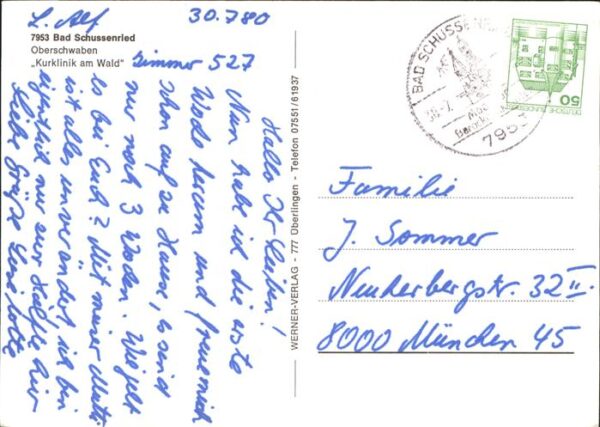 30.7.80
L. Alf
7953 Bad Schussenried
Oberschwaben
„Kurklinik am Wald"
Zimmer 527
Hallo Ihr Lieben!
Nun habe ich die erste
Woche herum und freue mich
schon auf zu Hause, es sind
nur noch 3 Wochen. Wie geht
es bei Euch? Mit meiner Mutti
ist alles unverändert, ich bin
eigentlich nur zur Hälfte hier
Liebe Grüße
WERNER-VERLAG - 777 Überlingen - Telefon 07551/61937
BAD SCHUSSENRIED
7953
50
DEUTSCHE BUNDESPOST
Familie
J. Sommer
8000 München 45